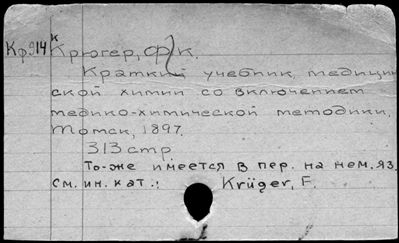 Кр914к Крюгер, Ф. К.
Краткий учебник, медицин
ской химии со включением
медико-химической методики,
Томск, 1897.
313 стр
То-же имеется в пер. на нем. яз.
см. ин. кат.: Krüger, F.